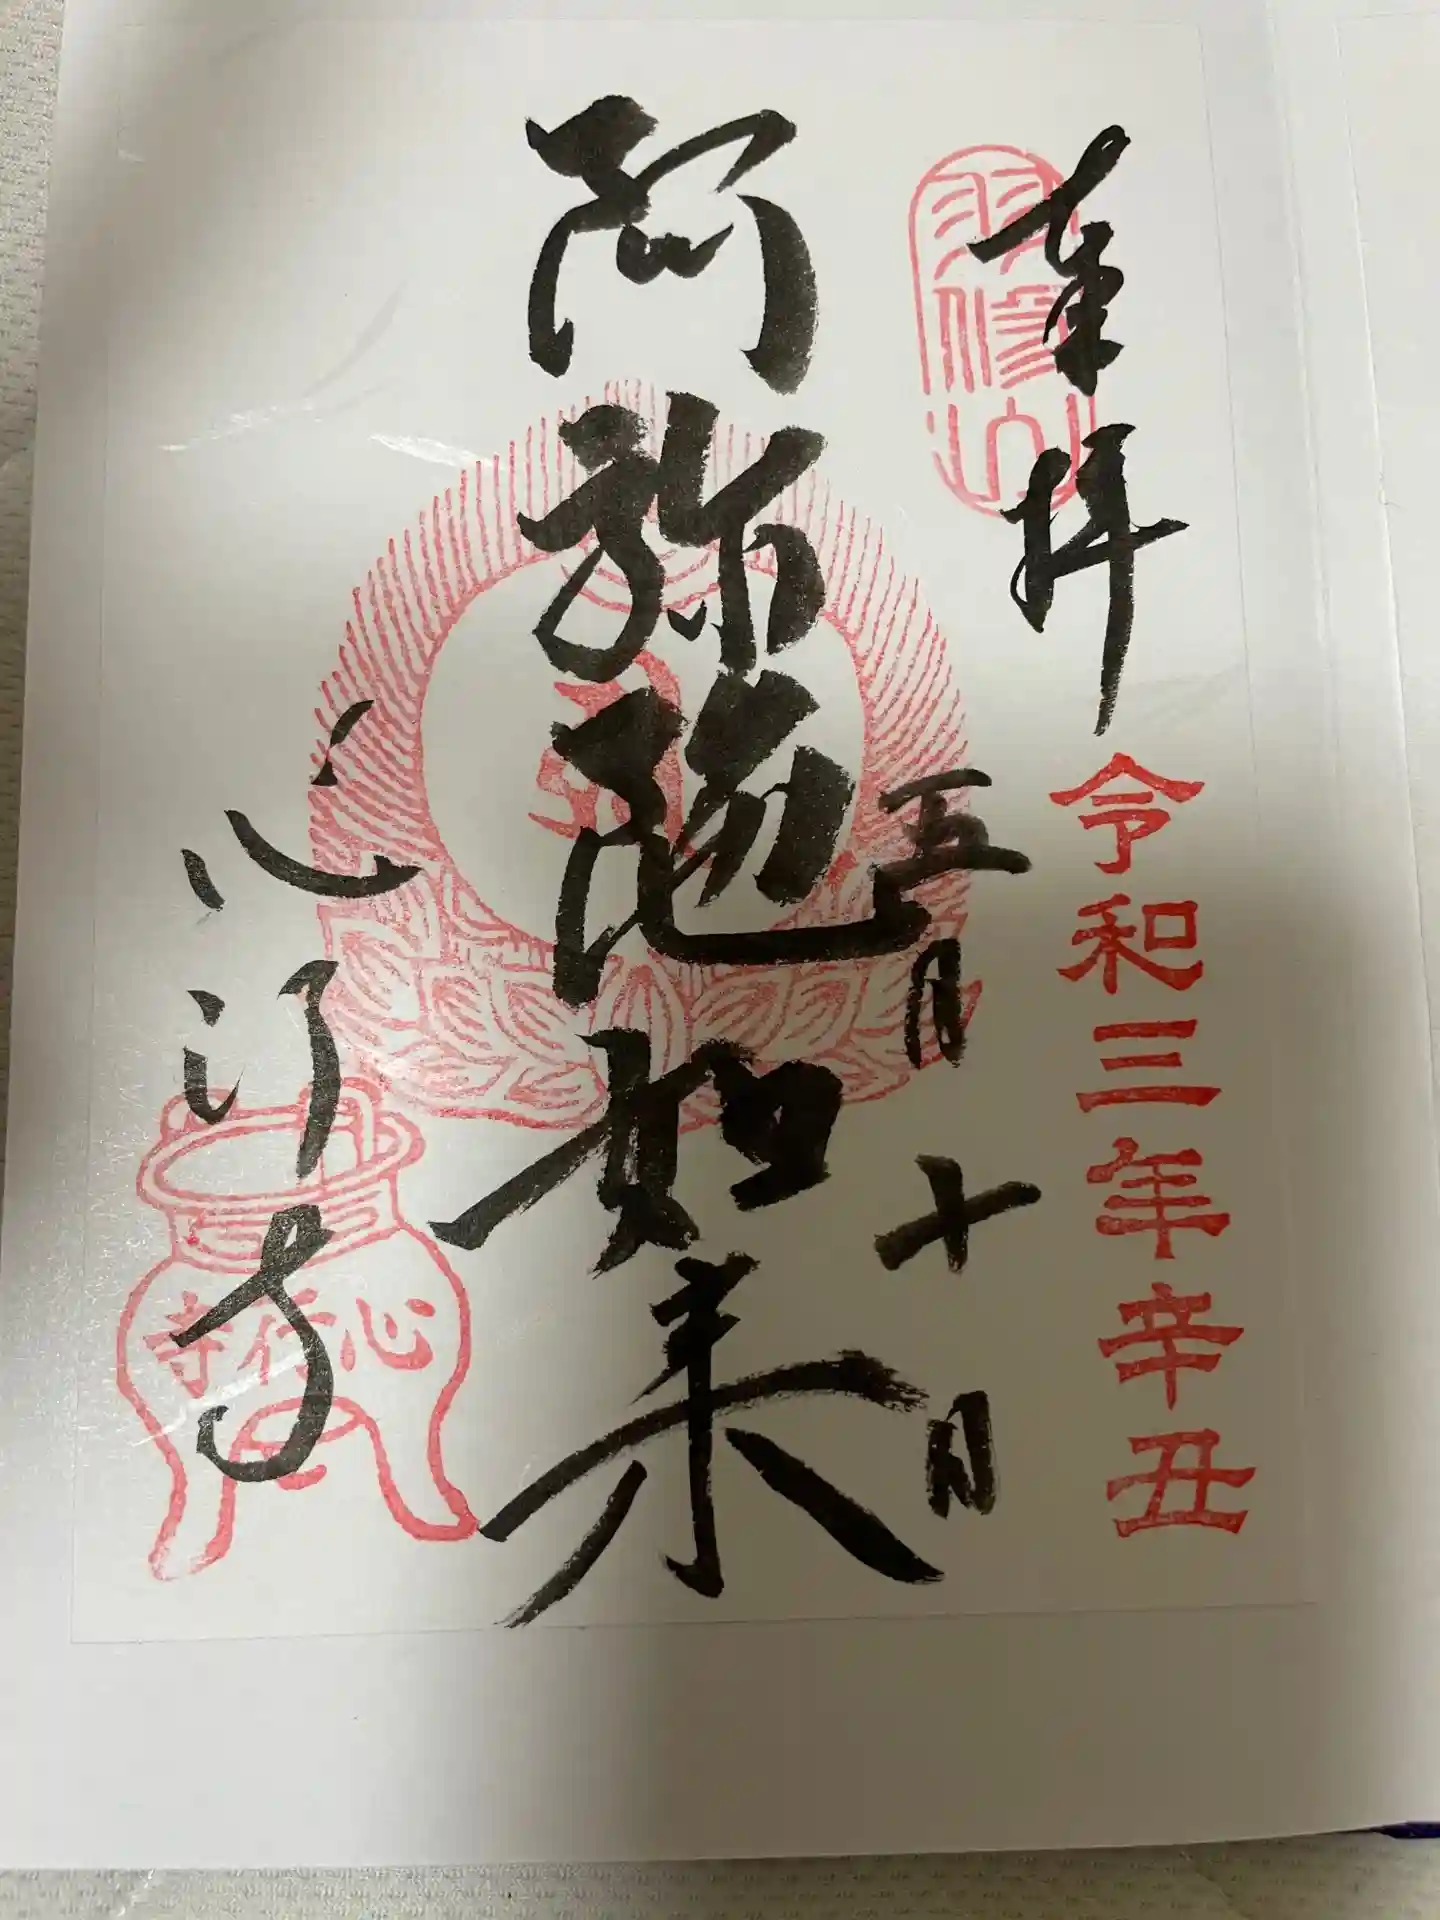 双修山
奉拝
令和三年辛丑
五月十日
阿弥陀如来
心行寺
心行寺